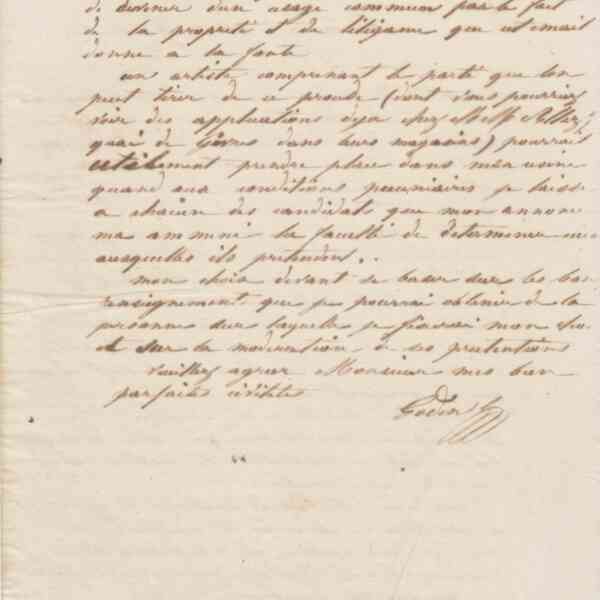 de devenir d'un usage commun par le fait
de la propreté et de l'élégance que cet email
donne a la fonte
un artiste comprenant le parti que l'on
peut tirer de ce procédé (dont vous pourriez
voir des applications deja chez MM Allez
quai de Gevres dans leurs magasins) pourrait
utilement prendre place dans mon usine
quand aux conditions pecuniaires je laisse
a chacun des candidats que mon annonce
ma ammené la faculté de determiner
auxquelles ils pretendent..
mon choix devant se baser sur les bons
renseignements que je pourrai obtenir de la
personne sur laquelle je fixerai mon choix
et sur la moderation de ses pretentions
Veuillez agreer Monsieur mes bien
parfaites civilités
Godin